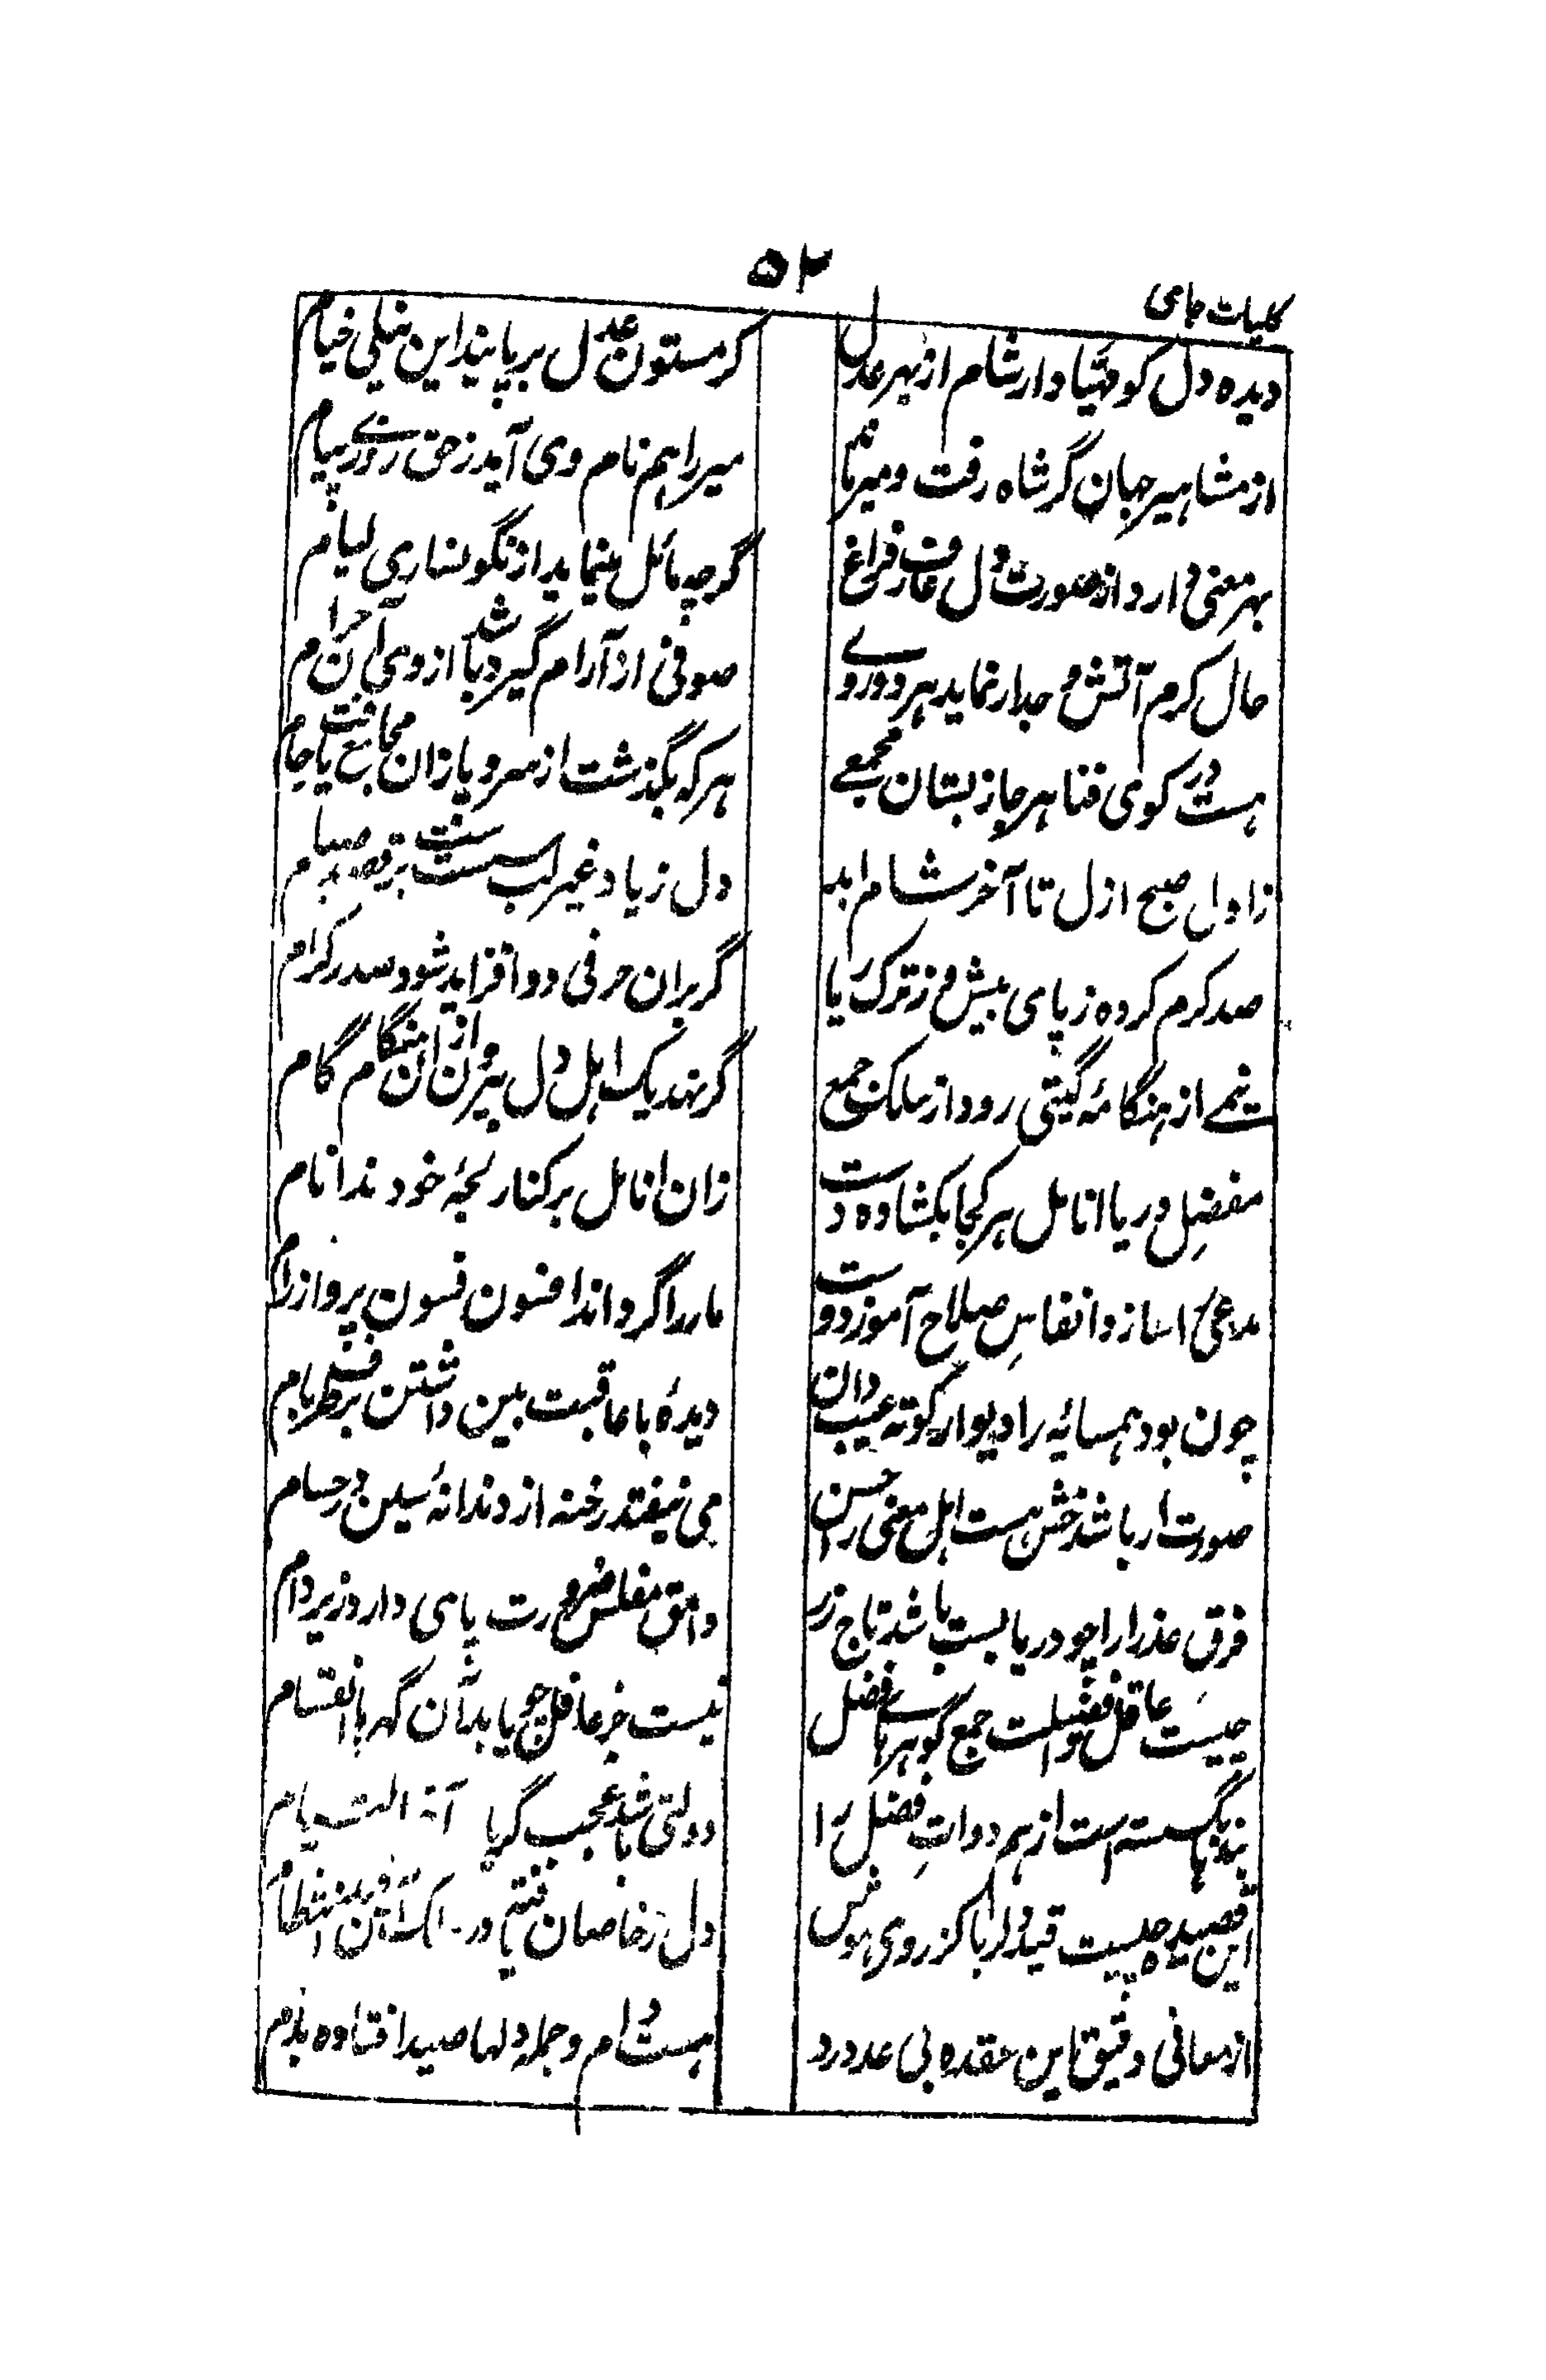 ۵۲
کلیات جامی
دیده دل کو مهیا دار شام از بهر عدل
کز ستون عدل بر پایند این نیلی خیام
از مشاهیر جهان گر شاه رفت و میر نام
میر را هم نام وی آید ز حق روزی پیام
بهر معنی دارد از صورت دل عارف فراغ
گرچه مائل مینماید از نگونساری لیام
حال کرم آتش و جدار نماید هر دو روی
صوفی از آرام گیرد باشد از وی آن حرام
هست در کوی فنا هر جا ز بستان مجمعی
هر که بگذشت از سر و پا زان مجامع یافت جام
ز اول صبح ازل تا آخر شام ابد
دل ز یاد غیر لب بست ست بر قصد صیام
صد کرم کرده ز پای بیش و ز ترک ریا
گر بران حرفی دو افزاید شود سدر کرام
از هنگامهٔ گیتی رود از سالک جمع
گر نهد یک اهل دل بیرون از ان هنگام گام
مفضل دریا انامل هر کجا بکشاده دست
زان انامل بر کنار لجهٔ خود ندانام
مدعی اسازد انفاس صلاح آموز دوست
مار را گرداند افسون فسون پرداز رام
چون بود همسایه را دیوار کوته عیب دان
دیدهٔ با عاقبت بین داشتن بر طرف بام
صورت ار باشد خشن هست اهل معنی را حسن
می نیفتد رخنه از دندانهٔ سین در حسام
فرق عذرا را چو در بایست باشد تاج زر
وامق مفلس ضرورت پای دارد زیر دام
چیست عاقل فضیلت جمع گوهرهای فضل
نیست جز عاقل چو یابد شان گهر با انقسام
بندها گسسته است از هم دوات فضل را
دولتی باشد عجب گر یا
این قصیده چیست قید دلربا کز روی هوش
دل ز خاصان
از معانی دقیق این عقده بی عدد درد
هست دام و جمله دلها صید افتاده بدام